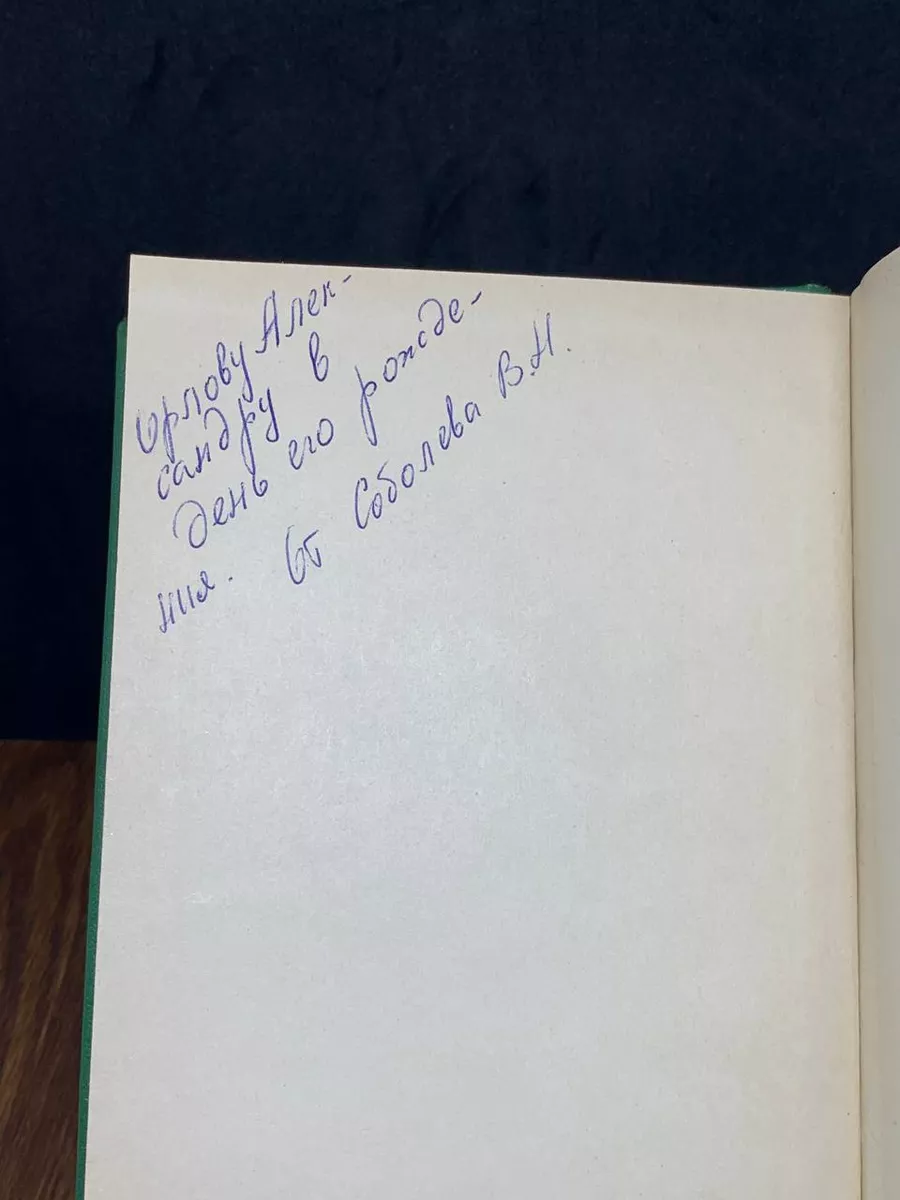 Орлову Алек-
сандру в
день его рожде-
ния. От Соболева В.Н.